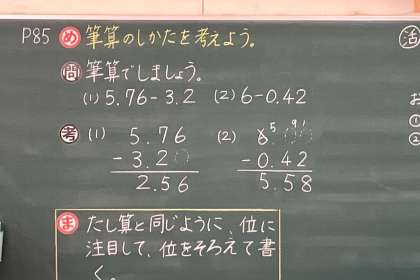 P85 め 筆算のしかたを考えよう。
問 筆算でしましょう。
(1) 5.76-3.2 (2) 6-0.42
考 (1) 5.76
-3.20
2.56
(2) 6 5 9 1
-0.42
5.58
ま たし算と同じように、位に
注目して、位をそろえて書
く。
活
お
①
②